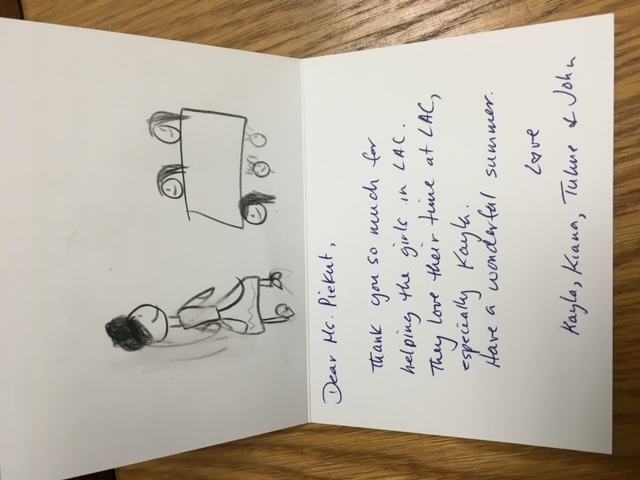 Dear Ms. Piekut,
Thank you so much for
helping the girls in LAC.
They love their time at LAC,
especially Kayla.
Have a wonderful summer.
Love
Kayla, Kiana, & John